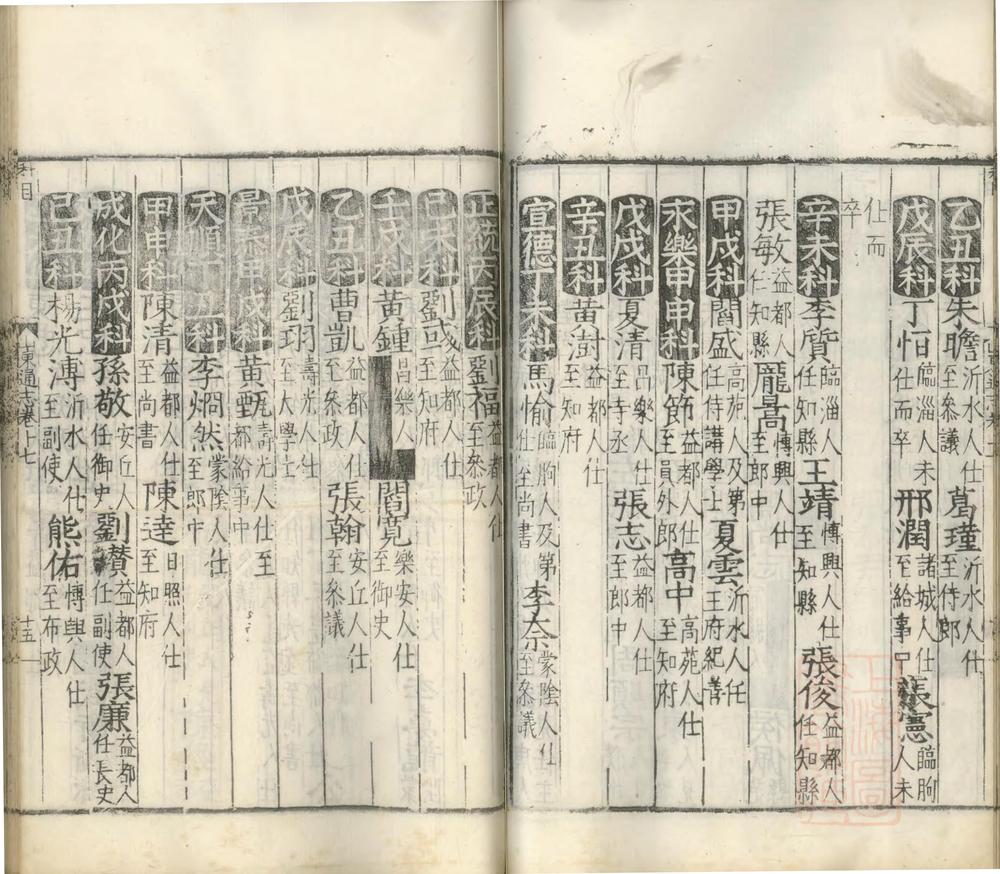 乙丑科朱瞻沂水人仕至叅議葛瑾沂水人仕至侍郎
戊辰科丁怕臨淄人未仕而卒邢潤諸城人仕至給事中張憲臨朐人未
仕而卒
辛未科李質臨淄人任知縣王靖博興人仕至知縣張俊益都人任知縣
張敏益都人任知縣龐暠博興人仕至郎中
甲戌科閻盛高苑人及第任侍講學士夏雲沂水人任王府紀善
永樂甲申科陳節益都人仕至員外郎高中高苑人仕至知府
戊戌科夏清昌樂人仕至寺丞張志益都人仕至郎中
辛丑科黃澍益都人仕至知府
宣德丁未科馬愉臨朐人及第仕至尚書李奈蒙陰人仕至叅議
正統丙辰科劉福益都人仕至叅政
己未科劉或益都人仕至知府
壬戌科黃鍾昌樂人閻寬樂安人仕至御史
乙丑科曹凱益都人仕至叅政張翰安丘人仕至叅議
戊辰科劉珝壽光人仕至大學士
景泰甲戌科黃甄壽光人仕至都給事中
天順丁丑科李烱然蒙陰人仕至郎中
甲申科陳清益都人仕至尚書陳逵日照人仕至知府
成化丙戌科孫敬安丘人任御史劉賛益都人任副使張廉益都人任長史
己丑科楊光溥沂水人仕至副使熊佑博興人仕至布政
科目
東通志卷十七
十五